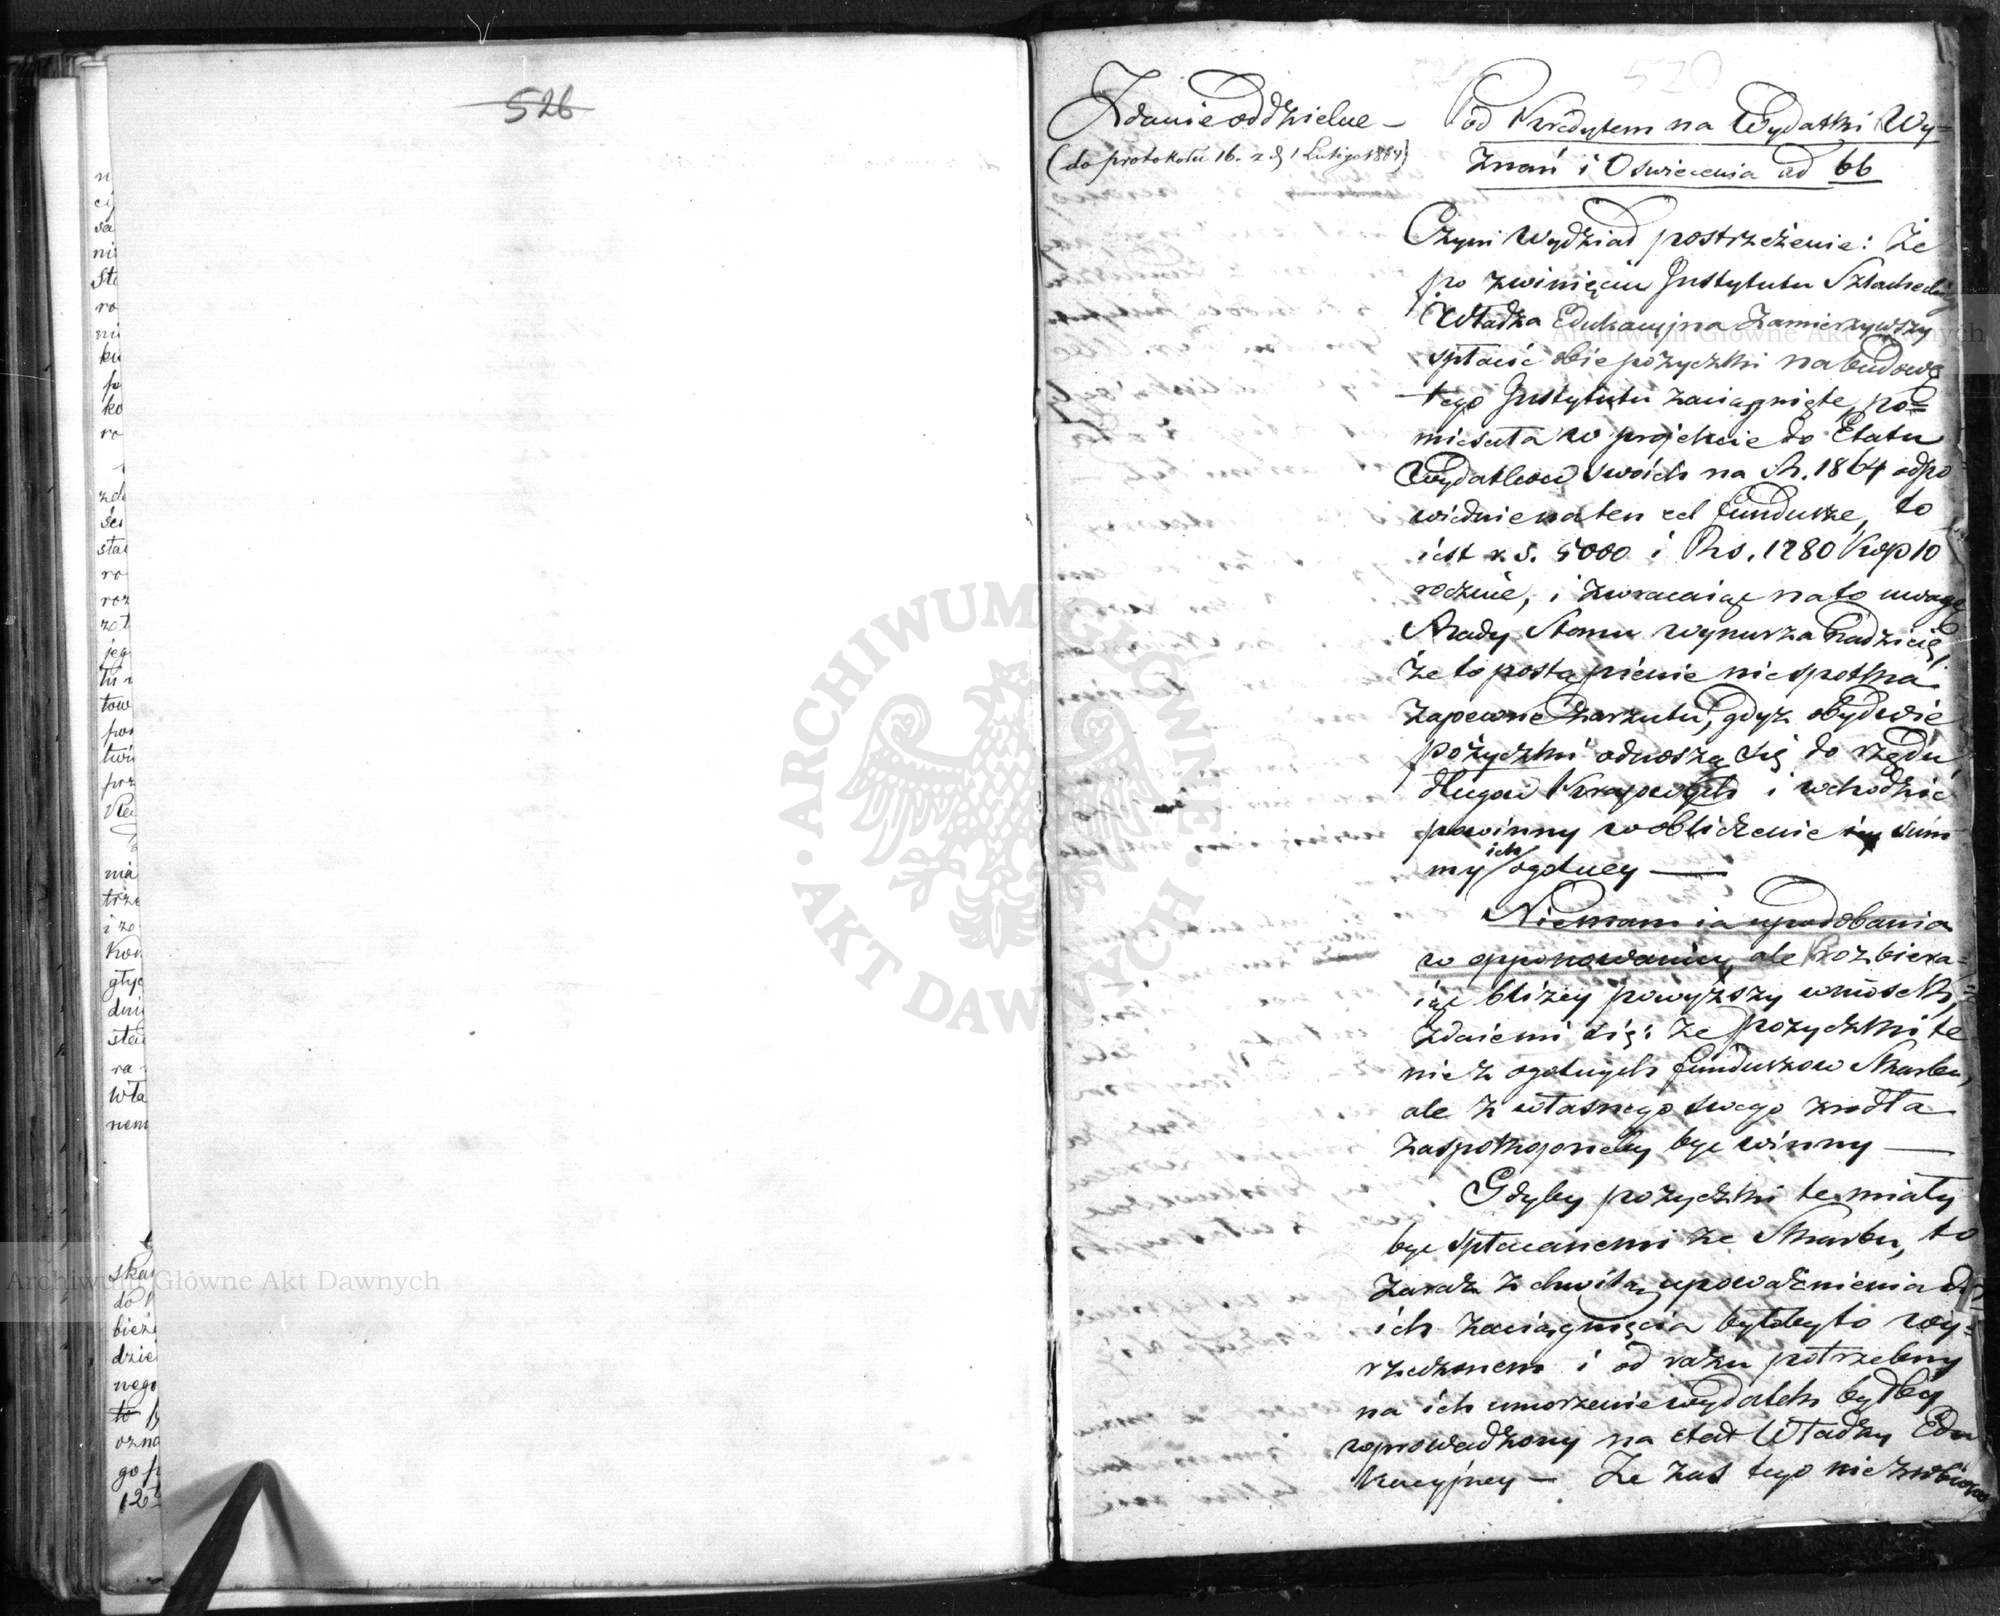 526
520
Zdanie oddzielne —
(do protokołu 16. z d. 1 Lutego 1864)
Pod Kredytem na Wydatki Wy-
znań i Oswiecenia ad 66
Czyni Wydział postrzeżenie: że
po zwinięciu Instytutu Szlachec
Władza Edukacyjna zamierzywszy
spłacić obie pożyczki na budowę
tego Instytutu zaciągnięte, po=
mieściła w projekcie do Etatu
Wydatkow swoich na R. 1864 odpo
wiednie na ten cel fundusze, to
iest r.s. 5000 i Rs. 1280 kop 10
rocznie, i zwracaiąc na to uwagę
Rady Stanu wynurza nadzieię,
że to postąpienie nie spotka
zapewne zarzutu, gdyż obydwie
pożyczki odnoszą się do rzędu
długow Kraiowych i wchodzić
powinny w obliczenie sum
my ich ogolney —
Niemam ia upodobania
w opponowaniu, ale rozbiera=
iąc bliżey powyższy wniosek,
zdaiemi się: że pożyczki te
nie z ogolnych funduszow Skarbu,
ale z własnego swego zrodła
zaspokojonemi być winny —
Gdyby pożyczki te miały
być spłacanemi ze Skarbu, to
zaraz z chwilą upoważnienia do
ich zaciągnięcia byłoby to wy=
rzeczonem i od razu potrzebny
na ich umorzenie wydatek byłby
wprowadzony na etat Władzy Edu
kacyjney — Że zaś tego nie zrobiono
Archiwum Główne Akt Dawnych
Archiwum Główne Akt Dawnych
· ARCHIWUM GŁÓWNE · AKT DAWNYCH